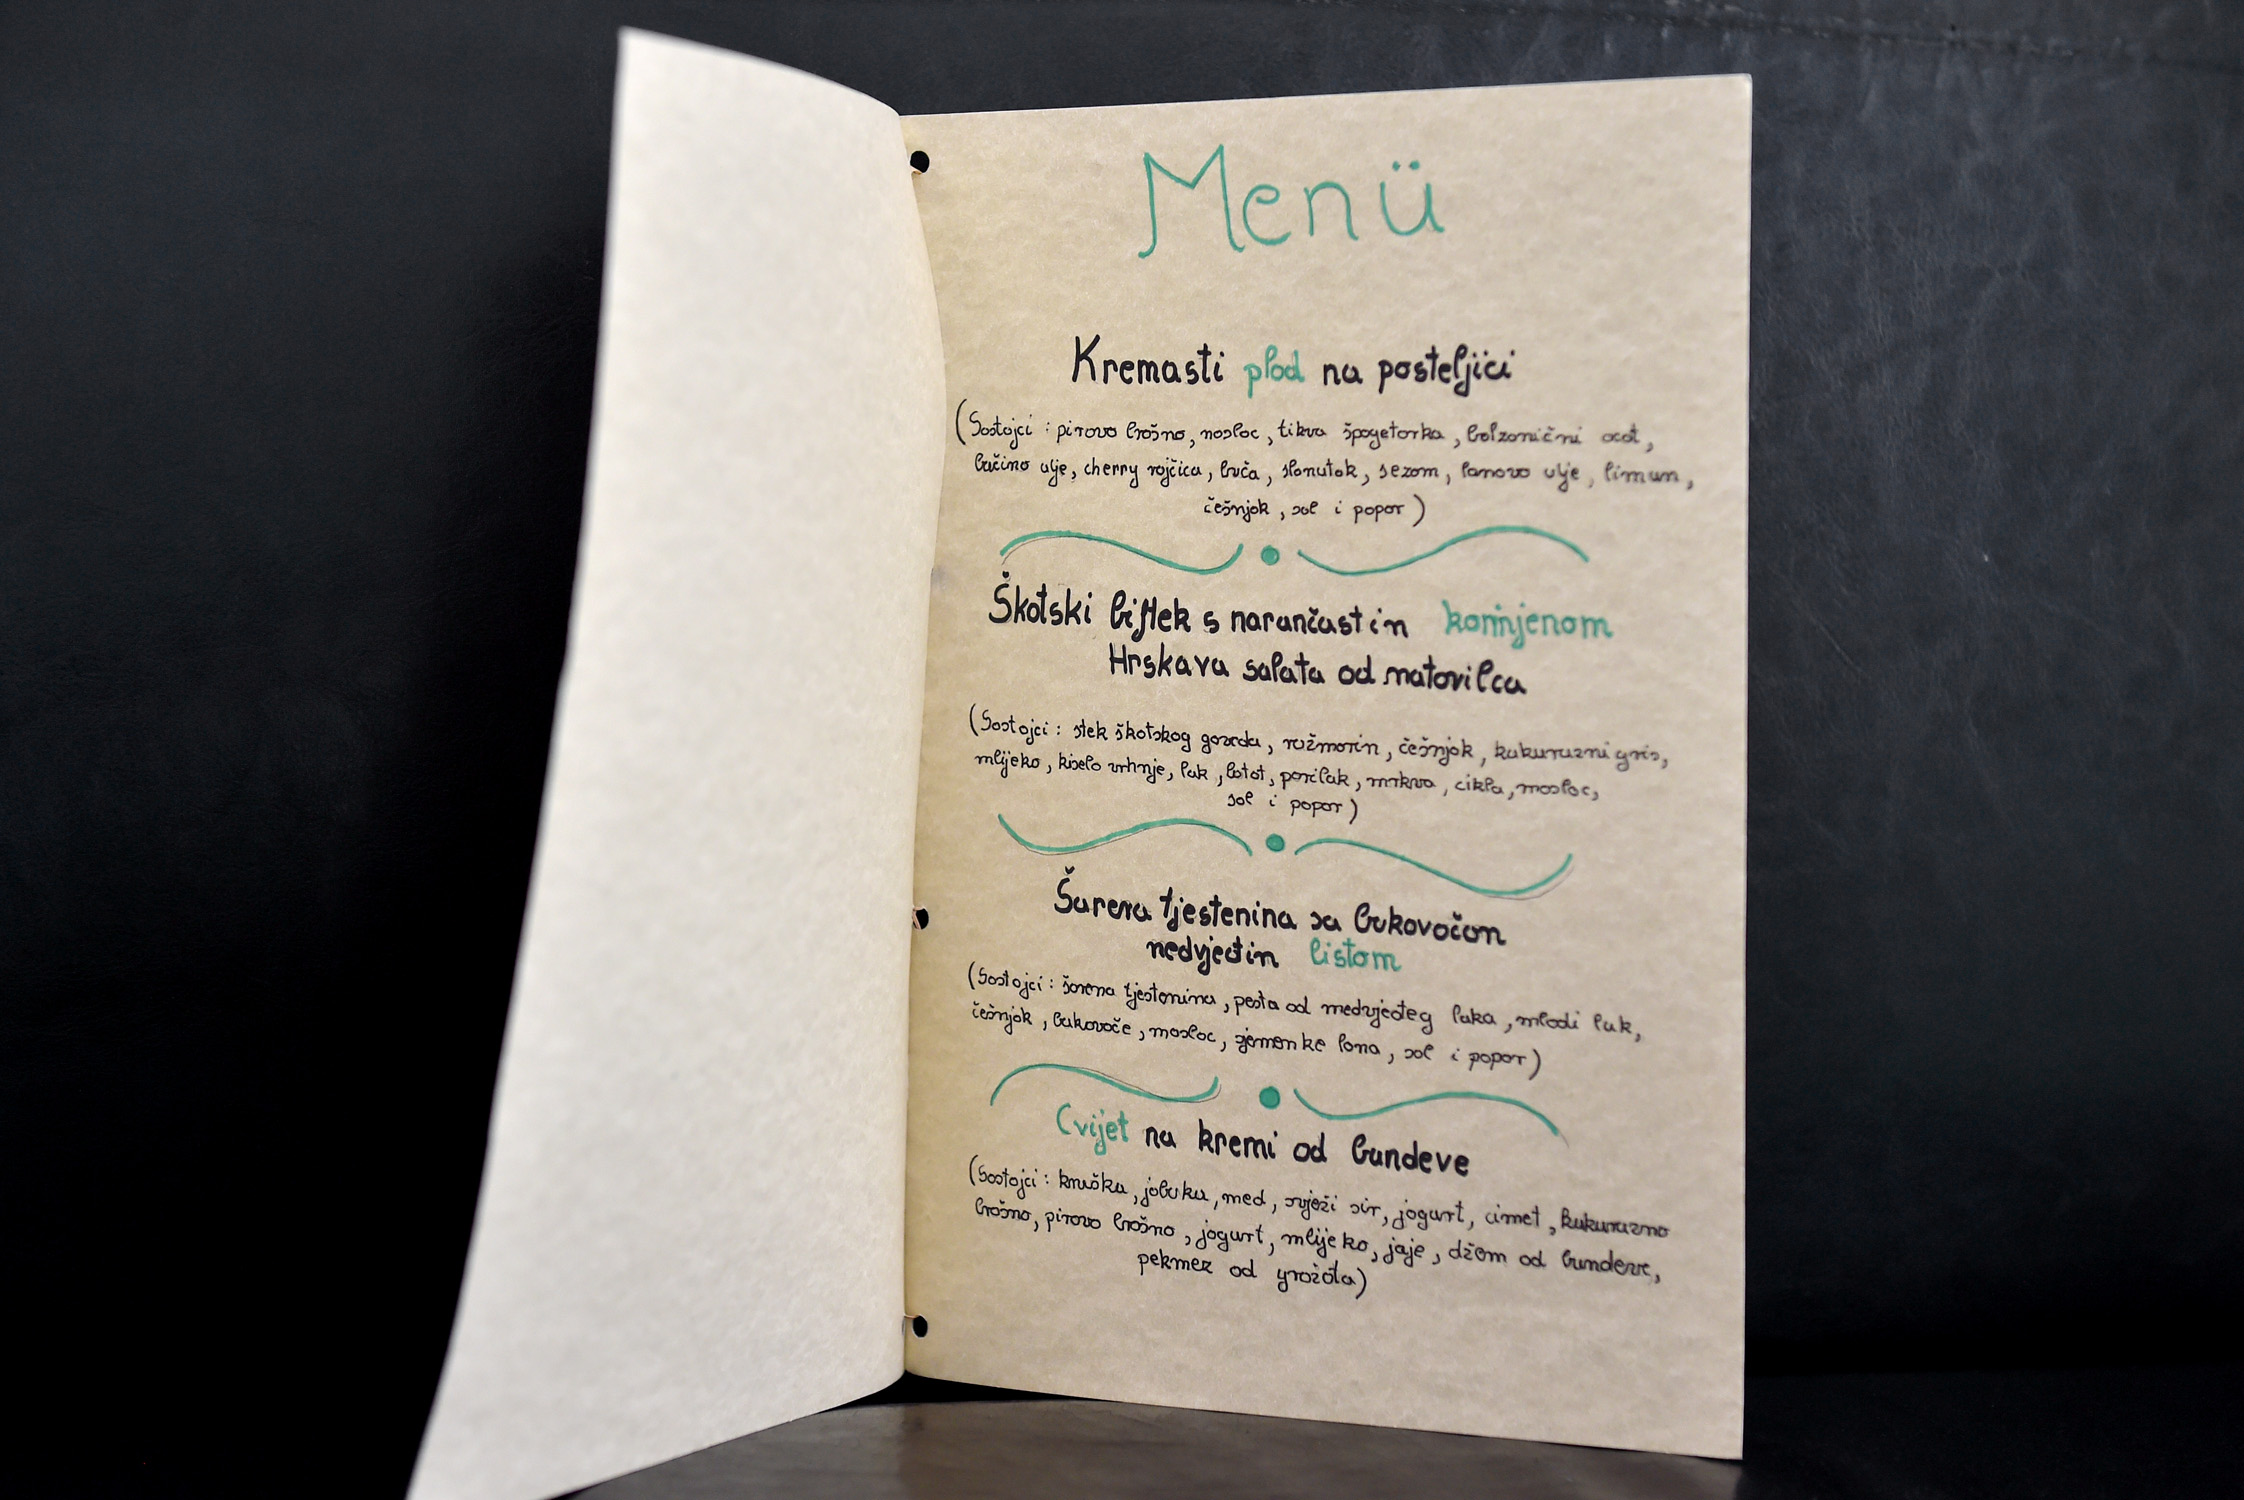 Menü
Kremasti plod na posteljici
(Sastojci : pirovo brašno, maslac, tikva špagetarka, balzamični ocat,
bučino ulje, cherry rajčica, buča, slanutak, sezam, lanovo ulje, limun,
češnjak, sol i papar)
Škotski biftek s narančastin korijenom
Hrskava salata od matovilca
(Sastojci : stek škotskog goveda, ružmarin, češnjak, kukuruzni gris,
mlijeko, kiselo vrhnje, luk, batat, poriluk, mrkva, cikla, maslac,
sol i papar)
Šarena tjestenina sa bukovačom
medvjeđin listom
(Sastojci : šarena tjestenina, pesta od medvjeđeg luka, mladi luk,
češnjak, bukovače, maslac, sjemenke lana, sol i papar)
Cvijet na kremi od bundeve
(Sastojci : kruška, jabuka, med, svježi sir, jogurt, cimet, kukuruzno
brašno, pirovo brašno, jogurt, mlijeko, jaje, džem od bundeve,
pekmez od grožđa)